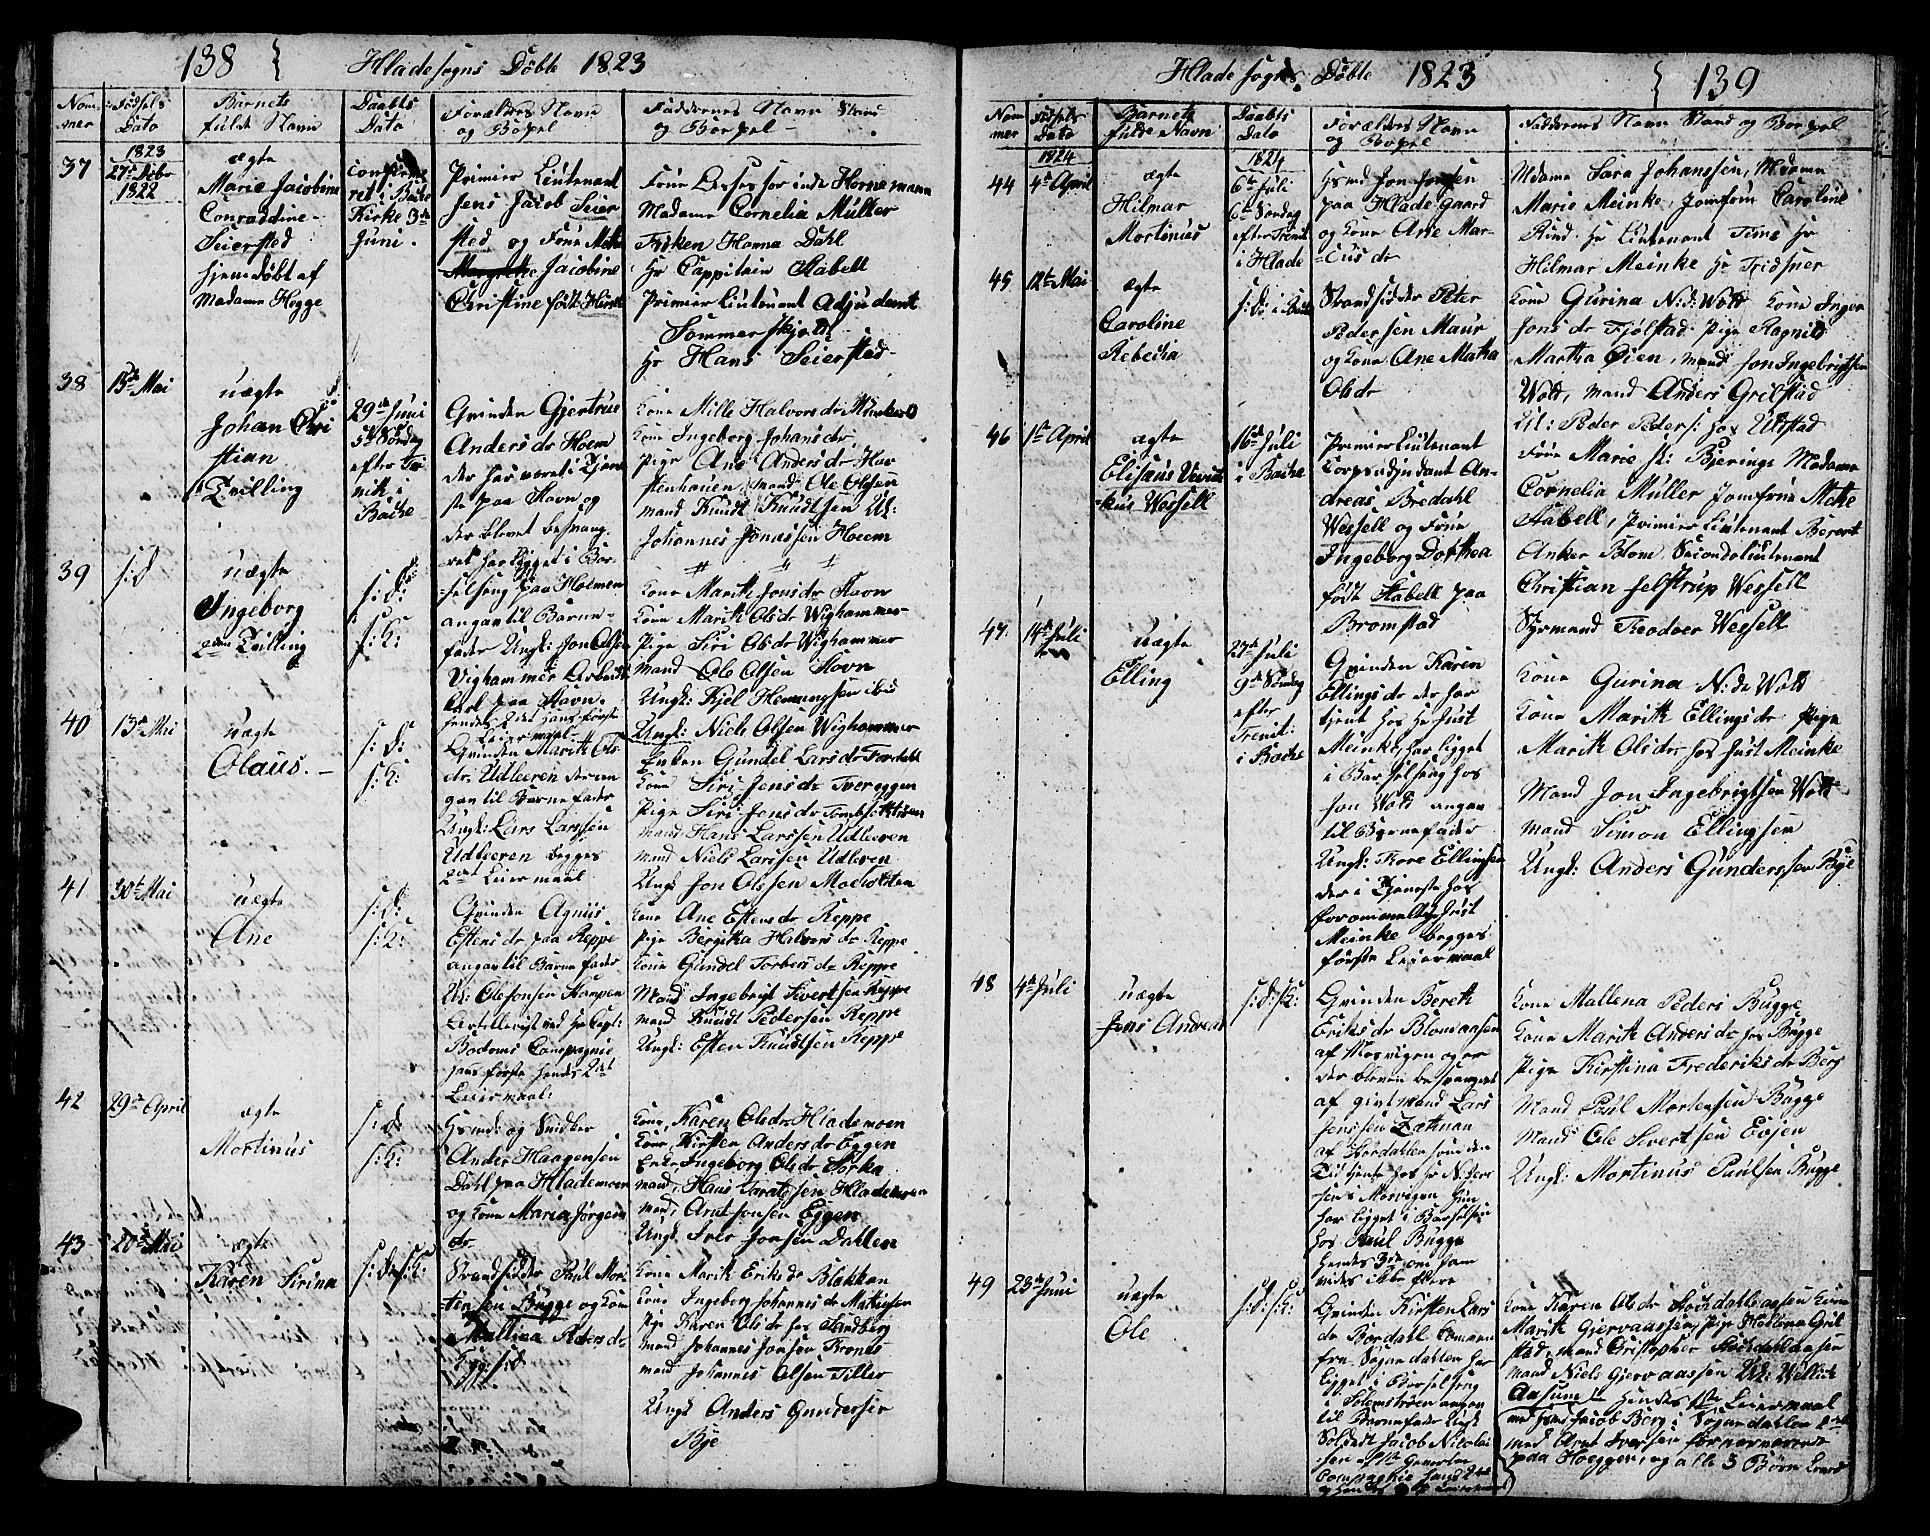 138 Hlade sogns Døbte 1823
Nom-mer
Fødsels Dato
Barnets fulde Navn
Daabts Dato
Forældres Navn og Bopæl
Faddernes Navn Stand og Bopæl
37
1823
27de Debr 1822
ægte
Marie Jacobine
Conradine
Seiersted
hjemdøbt af
Madame Hegge
confirme
ret i Bache
Kirke 3de
Juni.
Primier Lieutenant
Jens Jacob Seier
sted og Frue Mette
Margrethe Jacobine
Christine født Hirsch
Frue Assessorinde Hornemann
Madame Cornelia Müller
Frøken Hanna Dahl
Hr Cappitain Stabell
Primier Lieutenant Adjudant
Sommerskjold
Hr Hans Seiersted
38
13de Mai
uægte
Johan Chri
stian
Tvilling
29de Juni
5te Søndag
efter Tri
nit: i
Bache
Qvinden Gjertrue
Anders dr Hoem
der har været i Tjene
ste paa Stavn og
der blevet besvang
ret har ligget i Bar
selseng paa Holmen
angav til Barne-
fader Ungk: Jon Olsen
Vighammer Arbeids
karl paa Stavn.
hendes 2det hans første
Leiermaal
Kone Mille Halvors dr
Kone Ingeborg Johans dr
Pige Ane Anders dr Hav
stenhauen mand Ole Olsen
mand Knudt Knudtsen Uk:
Johannes Jonassen Hoem
39
s: d
uægte
Ingeborg
2den Tvilling
s: d:
s: K:
Kone Marith Jons dr Stavn
Kone Marith Ols dr Wighammer
Pige Siri Ols dr Wighammer
mand Ole Olsen Stavn
Ungk: Kjel Hemmingsen ibid
Ungk: Niels Olsen Wighammer
40
13de Mai
uægte
Olaus.
s: d:
s: K:
Qvinden Marith Ols
dr. Udleeren der an
gav til Barnefader
Ungk: Lars Larssen
Udleeren begges
2det Leiermaal
Enken Gundel Lars dr
Kone Siri Jens dr Tvereggen
Pige Siri Jens dr
mand Hans Larssen Udleeren
mand Niels Larssen Udleren
Ungk Jon Olssen Moeholten
41
30te Mai
uægte
Ane
s: d:
s: K:
Qvinden Agniis
Estens dr paa Reppe
angav til Barnefader
Uk: Ole Jonsen Stampen
Artellerist ved Hr Capt:
Bodoms Compagnie
hans første hendes 2det
Leiermaal:
Kone Ane Estens dr Reppe
Pige Beritha Halvors dr Reppe
Kone Gundel Torbers dr Reppe
Mand Ingebrigt Sivertsen Reppe
mand Knudt Pedersen Reppe
Ungk: Esten Knudtsen Reppe
42
29de April
ægte
Mortinus
s: d:
s: K:
Husmd: og Snidker
Ander Haagensen
Dahl paa Hlademoen
og Kone Maria Jørgens
dr
Kone, Karen Ols dr Hlademoen
Kone Kirsten Anders dr Eggen
Enke Ingeborg Ols dr Sorka
mand, Hans Hlademoen
mand, Arnt Jonsen Eggen
Ungk, Iver Jonsen Dahlen
43
20de Mai
ægte
Karen Sirina
s: d: s: K:
Strandsidder Paul Mor
tensen Bugge og Kone
Mallina Peders dr
Kone Marith Eriks dr Blakkan
Kone Ingeborg Johannes dr
Pige Karen Ols dr hos Sandberg
mand Johannes Jonsen
mand Johannes Olsen Tiller
Ungk Anders Gundersen
Bye
Hlade sogns Døbte 1823 139
Nom mer
Fødsels Dato
Barnets fulde Navn
Daabts Dato
Forældres Navn og Bopæl
Faddernes Navn Stand og Bopæl
44
1824
4de April
ægte
Hilmar
Mortinus
1824
6te Juli
6te Søndag
efter Trinit
i Hlade
Husmd Jon Jonsen
paa Hlade Gaard
og Kone Ane Mar-
cus dr
Mdame Sara Johanssen, Mdame
Marie Meinke, Jomfru Caroline
Rind Hr Lieutenant Hr
Hilmar Meinke Hr Fridsner
45
12te Mai
ægte
Caroline
Rebecha
s: d: i Bache
Strandsidder Peter
Pedersen Maur
og Kone Ane Matha
Ols dr
Kone Gurina N: d: Wold Kone Inger
Jons dr Fjølstad Pige Ragnild
Martha Øien, mand Jon Ingebrigtsen
Wold, mand Anders Grilstad
Uk: Peder Peders: hos
46
1ste April
ægte
Elisæus
Wessell
16de Juli
i Bache
Primier Lieutenant
Corpsadjudant An-
dreas Bredahl
Wessell og Frue
Ingeborg Dorthea
født Stabell paa
Bromstad
Frue Marie Bjerings Madame
Cornelia Müller Jomfrue Mette
Stabell, Primier Lieutenant Berent
Anker Blom, Secondlieutenant
Christian Jelstrup Wessell
Styrmand Teodoer Wessell
47
14de Juli
uægte
Elling
27de Juli
9de Søndag
efter
Trenit:
i Bache
Qvinden Karen
Ellings dr der har
tjent hos Hr Just
Meinke, har ligget
i Barselseng hos
Jon Wold angav
til Barnefader
Ungk: Tore Ellingsen
der i Tjeneste hos
forommeldte Just
Meinke begges
første Leiermaal
Kone Gurina N: dr Wold
Kone Marith Ellings dr Pige
Marith Ols dr hos Just Meinke
Mand Jon Ingebrigtsen Wold
mand Simon Ellingsen
Ungk: Anders Gunderssen Bye
48
4de Juli
uægte
Jens Andreas
s: d: s: K:
Qvinden Bereth
Eriks dr Blomaasen
af Mosvigen og er
der bleven besvangret
af givt mand Lars
Jenssen
af Størdalen som den
Tid tjente hos Hr N:
Mosvigen hun
har ligget i Barselseng
hos Paul Bugge
hendes 3die om ham
vides ikke flere
Kone Mallena Peders Bugge
Kone Marith Anders dr hos Bugge
Pige Kirstina Frederiks dr Berg
Mand Paul Mortensen Bugge
Mand Ole Sivertsen Evjen
Ungk: Mortinus Paulsen Bugge
49
23de Juni
uægte
Ole
s: d: s: K:
Qvinden Kirsten Lars
dr Bordahl kommen
fra Sogndahlen har
ligget i Barselseng
i angav
til Barnefader Ungk
Soldat Jacob Nicolai
sen
Compagnie hans
Kone Karen Ols dr Kone
Marith Gjervaassen Pige Mallena Gril
stad, mand Cristopher
mand Niels Gjervaassen Uk: Wellich
Aasum hendes 1ste Leiermaal
med Jacob Berg i Sogndahlen 2det
med Arnt Iversen fornærværende
paa Hoeggen, og alle 3 Børn